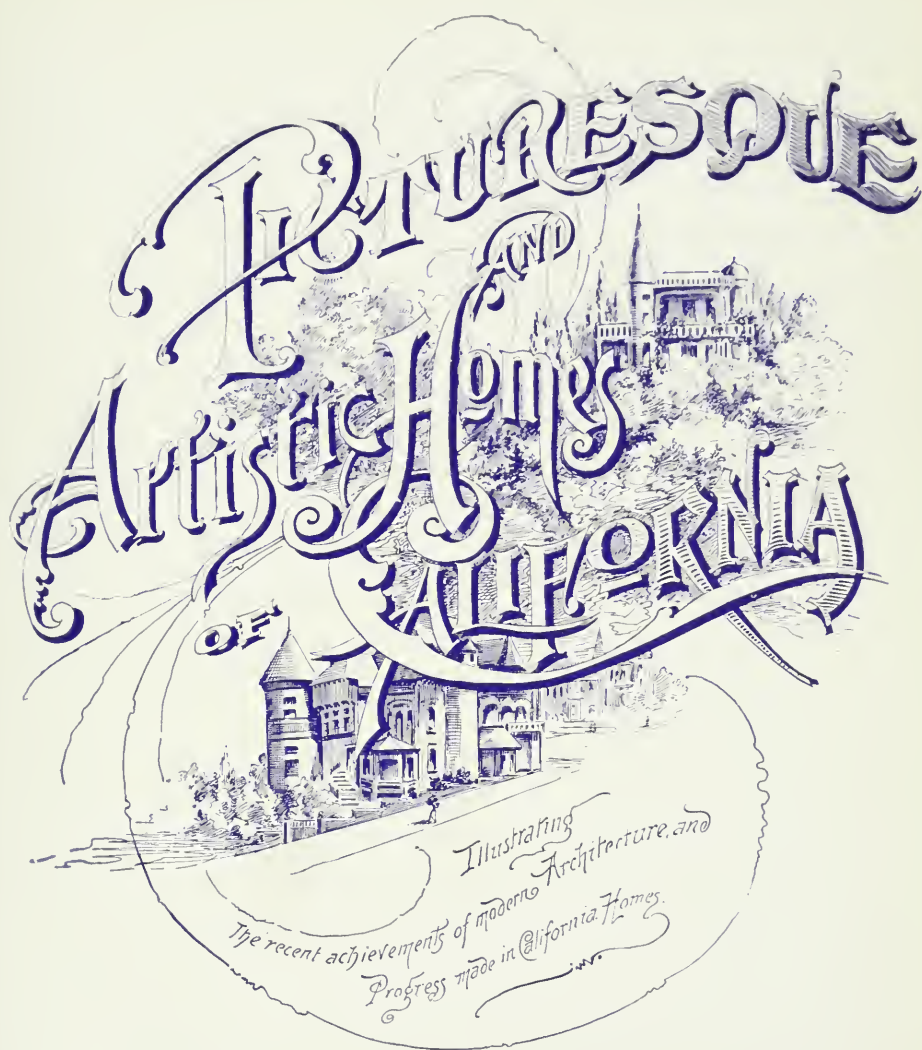 PICTURESQUE
AND
Artistic Homes
OF CALIFORNIA
Illustrating
The recent achievements of modern Architecture, and
Progress made in California Homes.